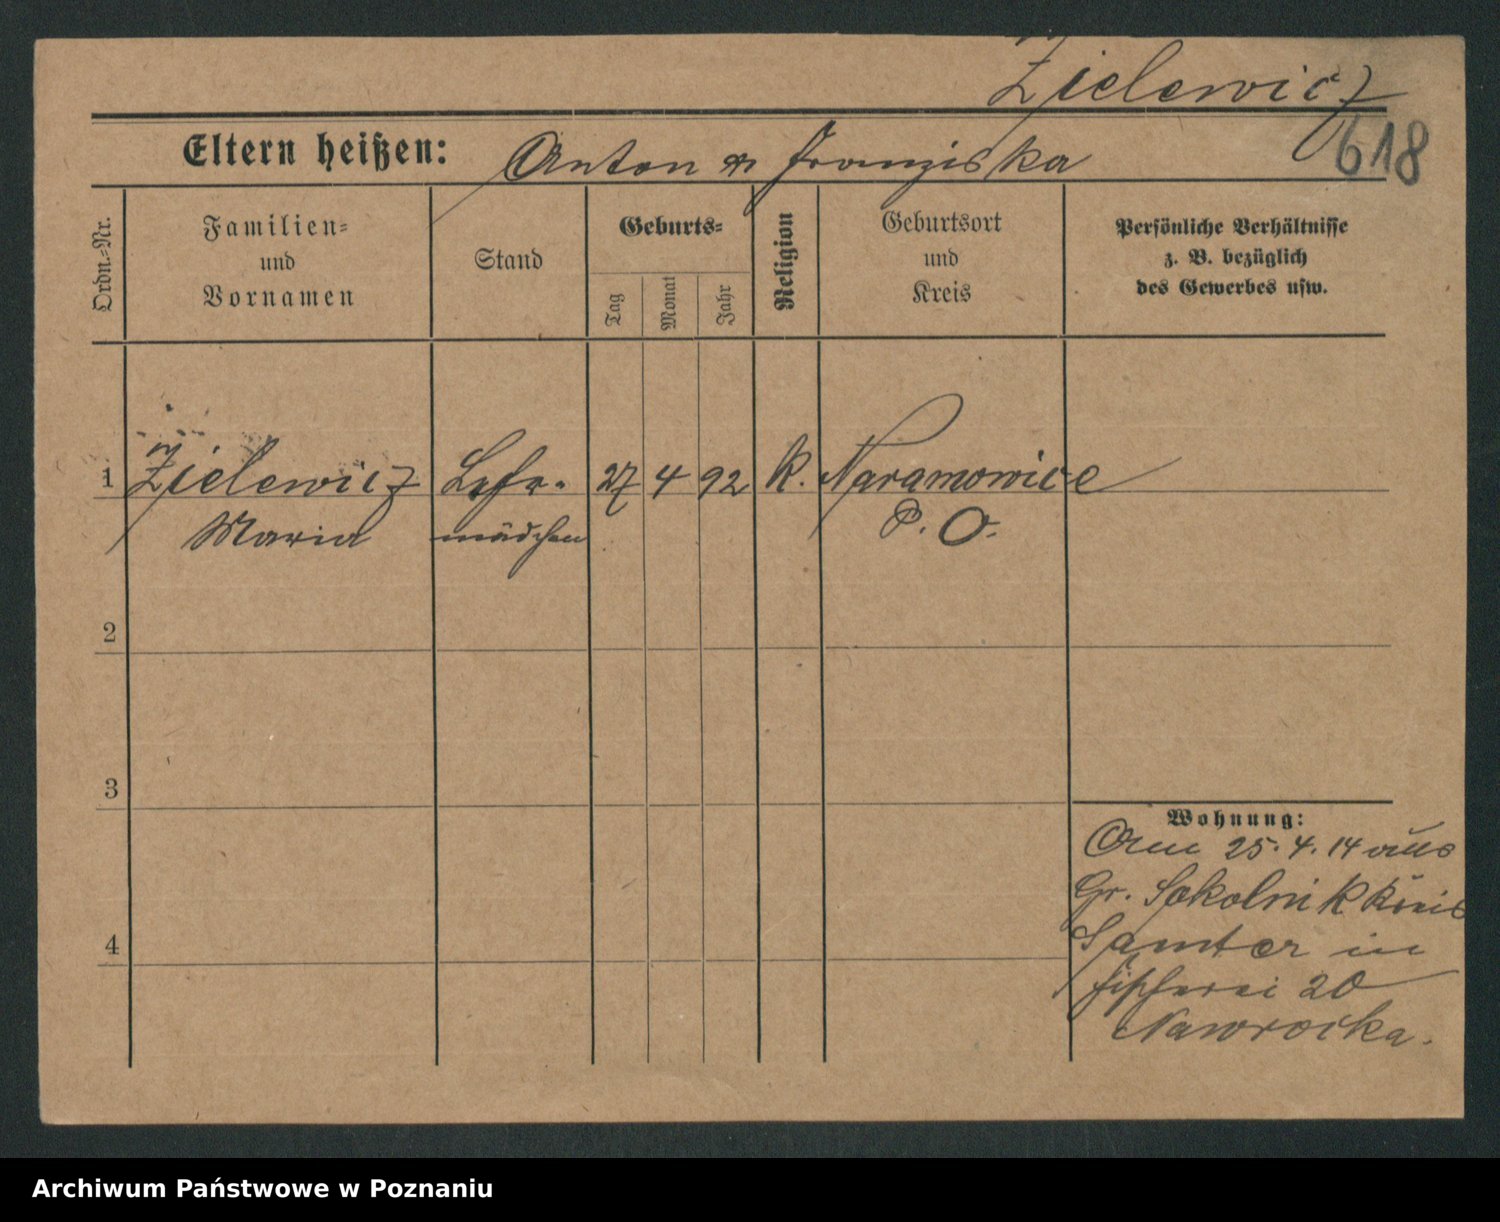 Zielewicz
618
Eltern heißen: Anton u Franziska
Ordn.-Nr.
Familien-
und
Vornamen
Stand
Geburts-
Tag
Monat
Jahr
Religion
Geburtsort
und
Kreis
Persönliche Verhältnisse
z. B. bezüglich
des Gewerbes usw.
1 Zielewicz Lehr- 27 4 92 k. Naramowice
Maria mädchen P. O.
2
3
Wohnung:
Am 25.4.14 aus
Gr. Sokolnik Kreis
4
Samter in
Fischerei 20
Nawrocka.
Archiwum Państwowe w Poznaniu